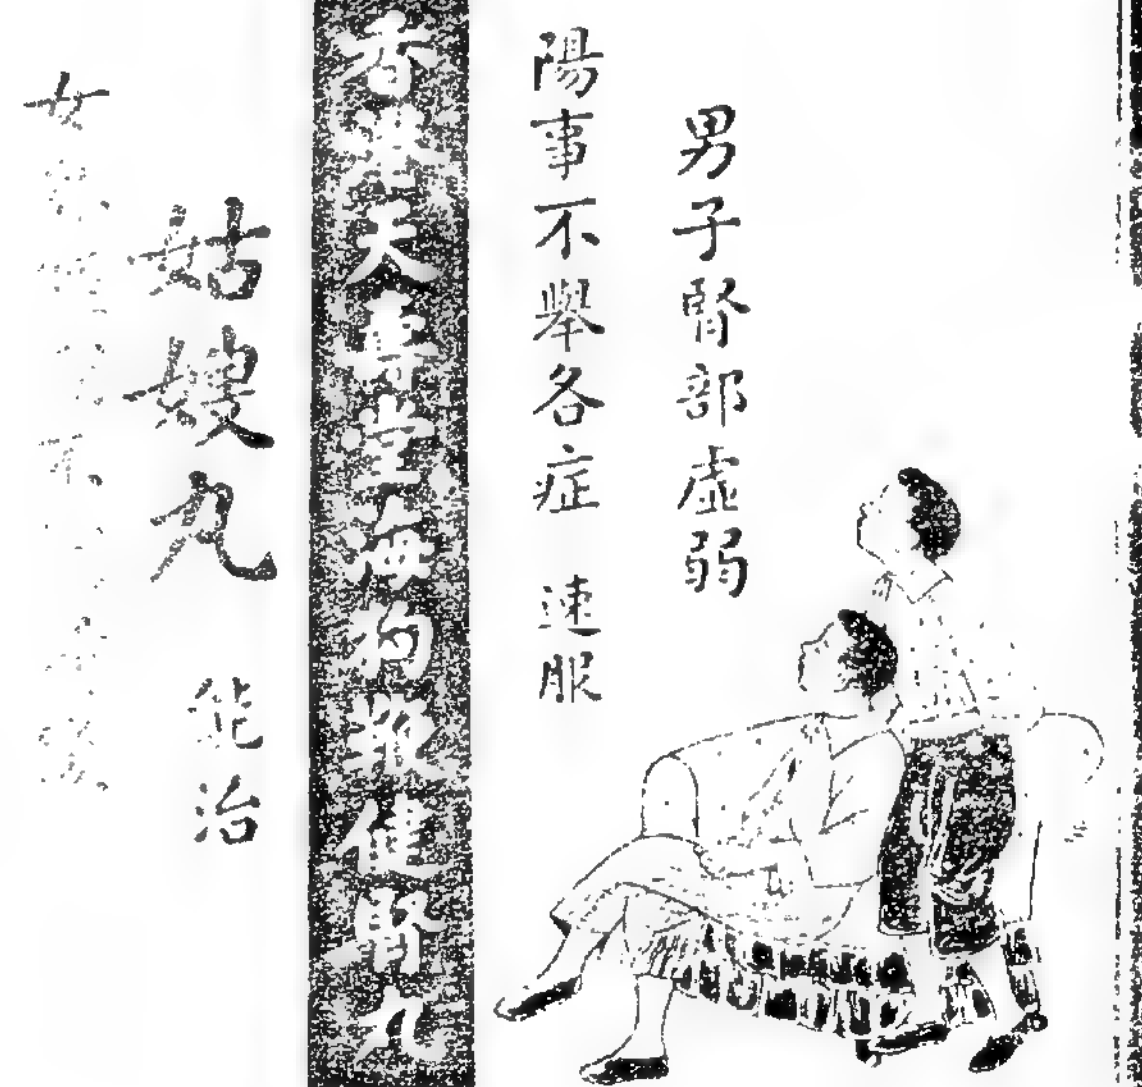 男子腎部虛弱
陽事不舉各症 速服
香港天壽堂海狗鞭健腎丸
姑嫂丸 能治
女
不